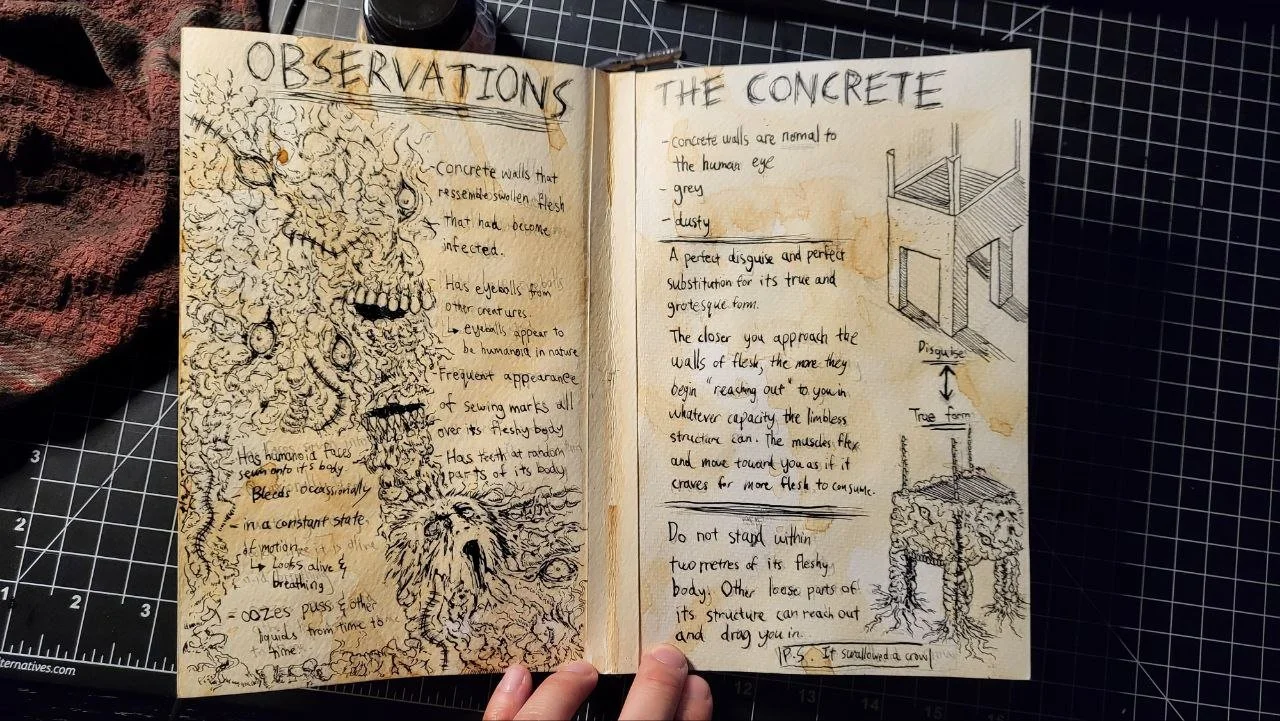 OBSERVATIONS
- Concrete walls that
resemble swollen flesh
that had become
infected.
Has eyeballs from
other creatures.
↳ eyeballs appear to
be humanoid in nature
- Frequent appearance
of sewing marks all
over its fleshy body
- Has teeth at random
parts of its body
Has humanoid faces
sewn onto its body.
- Bleeds occassionally
- in a constant state
of motion
↳ Looks alive &
breathing
- oozes puss & other
liquids from time to
time.
THE CONCRETE
- concrete walls are normal to
the human eye
- grey
- dusty
A perfect disguise and perfect
substitution for its true and
grotesque form.
The closer you approach the
walls of flesh, the more they
begin "reaching out" to you in
whatever capacity the limbless
structure can. The muscles flex
and move toward you as if it
craves for more flesh to consume.
Do not stand within
two metres of its fleshy
body. Other loose parts of
its structure can reach out
and drag you in.
P.S. It swallowed a crow
Disguise
True form
3
2
1
2
3
lternatives.com
12
13
14
15
16